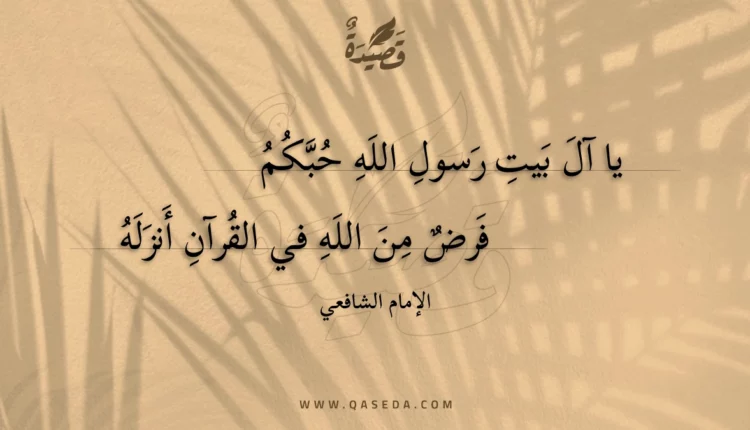 قَصِيدَةٌ
يا آلَ بَيتِ رَسولِ اللَهِ حُبَّكُمُ
فَرَضٌ مِنَ اللَهِ في القُرآنِ أَنزَلَهُ
الإمام الشافعي
WWW.QASEDA.COM